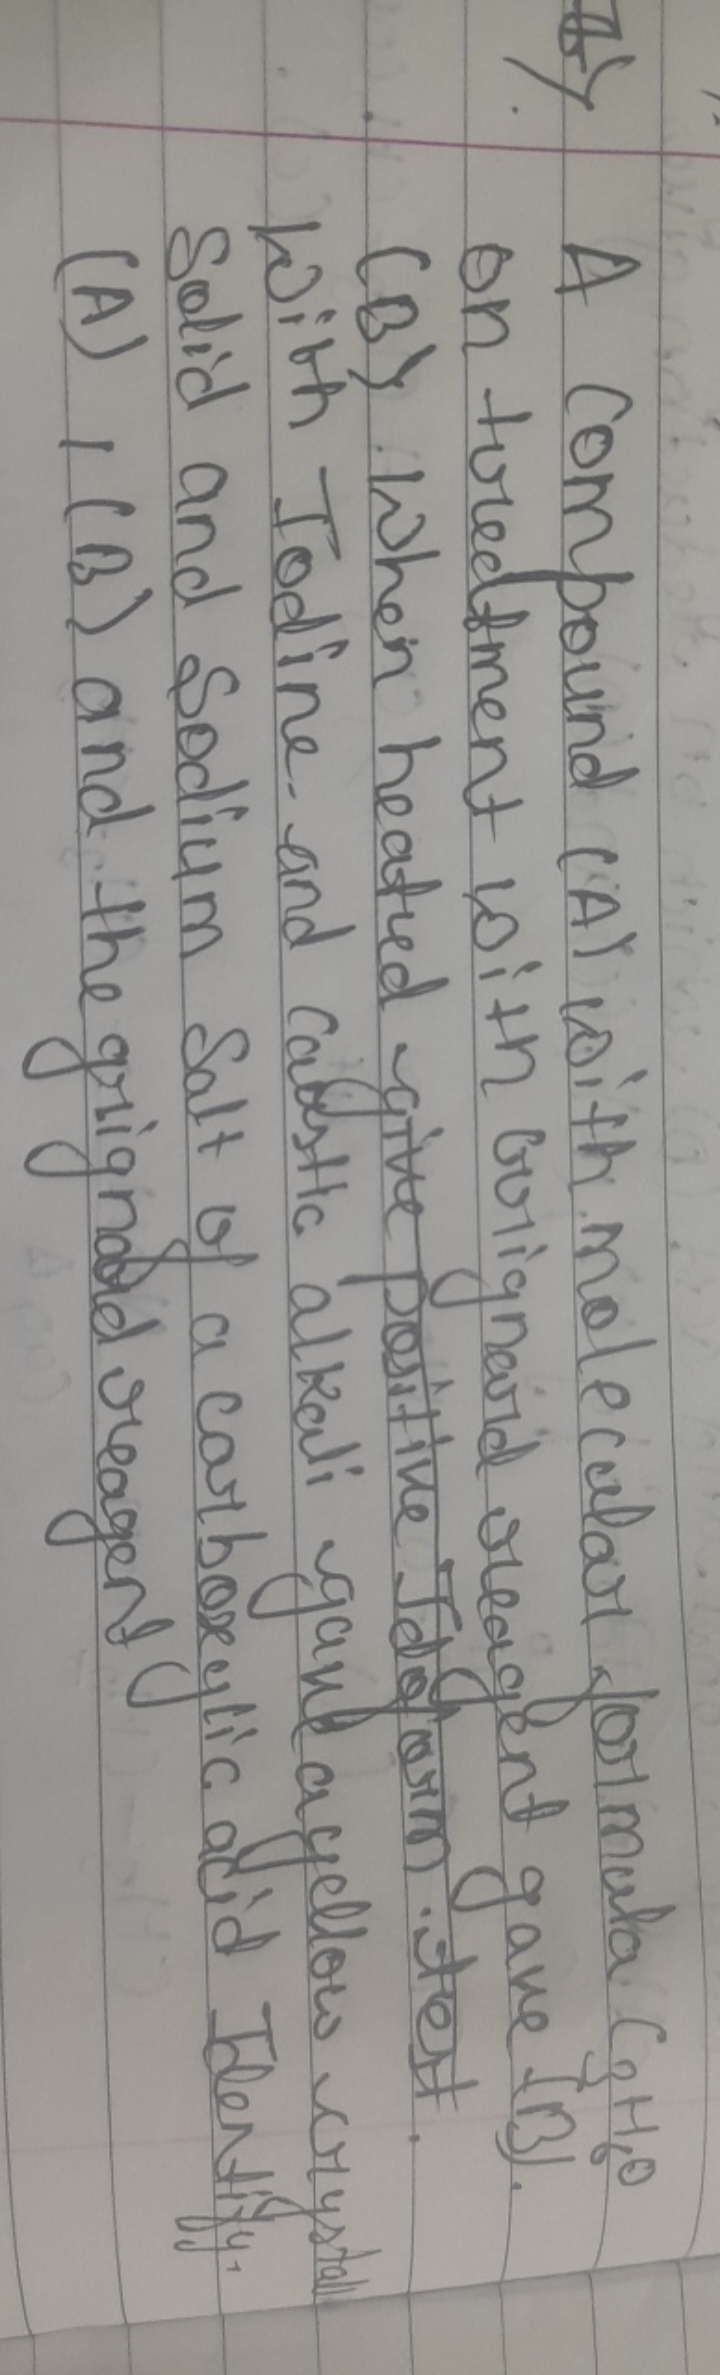 A compound (A) with molecular formula C2H6O
on treatment with Grignard reagent gave (B).
(B) when heated give positive Idoform test.
with Iodine and caustic alkali gave a yellow crystall
Solid and Sodium Salt of a carboxylic acid Identify.
(A), (B) and the grignard reagent